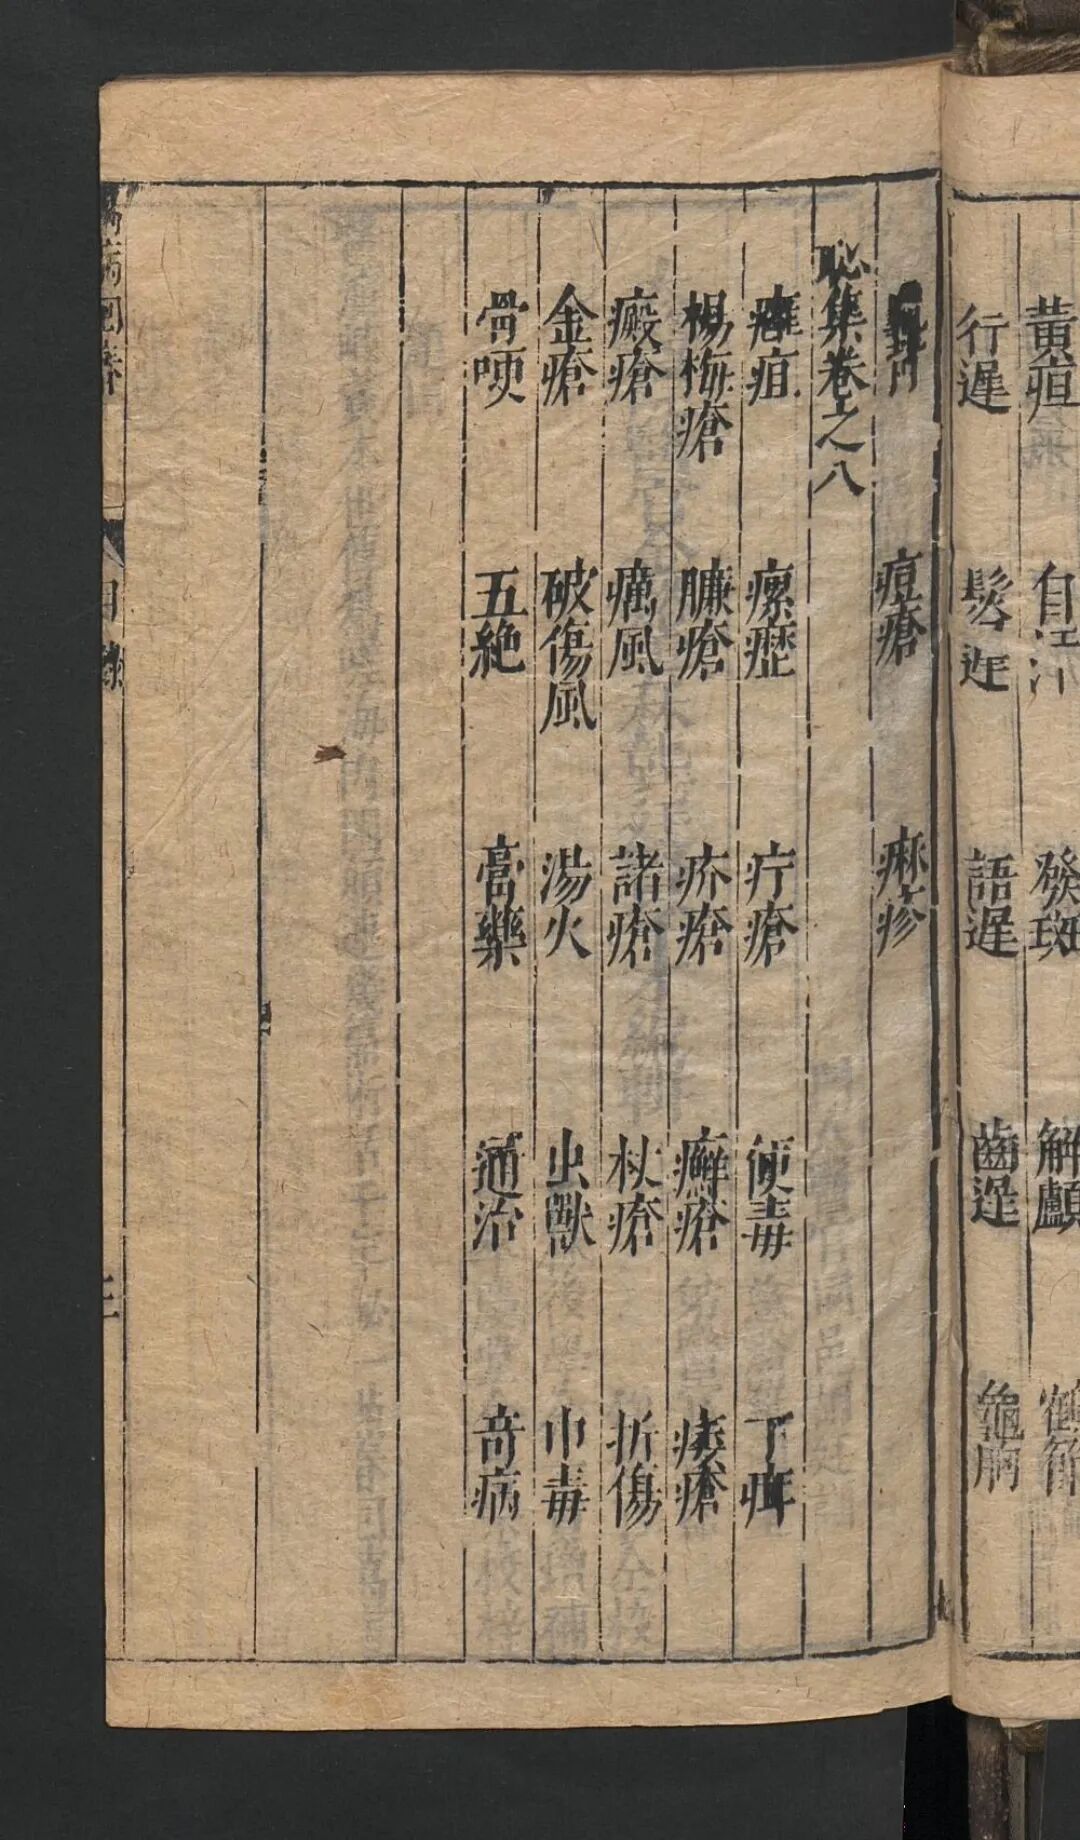 黃疸 自汗 發斑 解顱 鶴節
行遲 髮遲 語遲 齒遲 龜胸
龜背 痘瘡 麻疹
恥集卷之八
癰疽 瘰癧 疔瘡 便毒 下疳
楊梅瘡 臁瘡 疥瘡 癬瘡 痿瘡
癜瘡 癘風 諸瘡 杖瘡 折傷
金瘡 破傷風 湯火 虫獸 中毒
骨哽 五絶 膏藥 通治 奇病
目錄